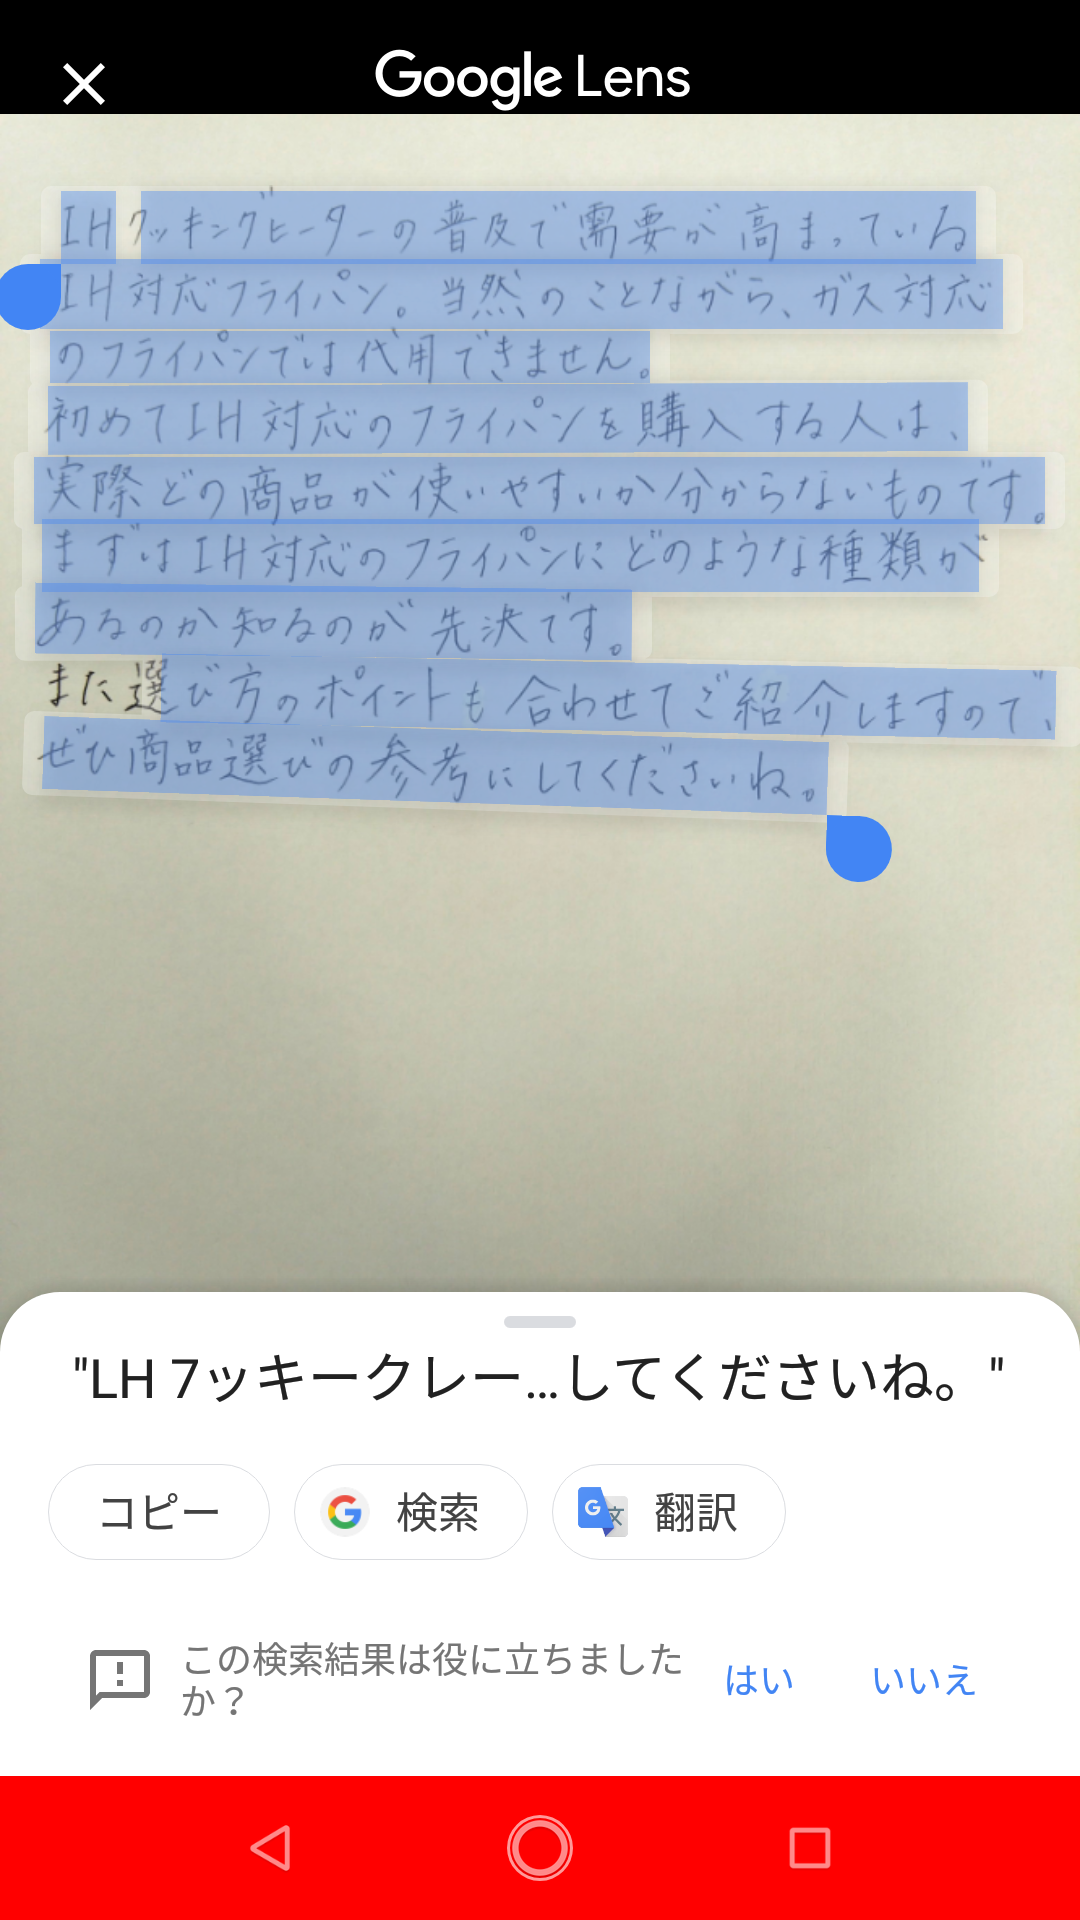 Google Lens
IHクッキングヒーターの普及で需要が高まっている
IH対応フライパン。当然のことながら、ガス対応
のフライパンでは代用できません。
初めてIH対応のフライパンを購入する人は、
実際どの商品が使いやすいか分からないものです。
まずはIH対応のフライパンにどのような種類が
あるのか知るのが先決です。
また選び方のポイントも合わせてご紹介しますので、
ぜひ商品選びの参考にしてくださいね。
"LH 7ッキークレー...してくださいね。"
コピー
G 検索
G 文 翻訳
この検索結果は役に立ちました
か？
はい いいえ